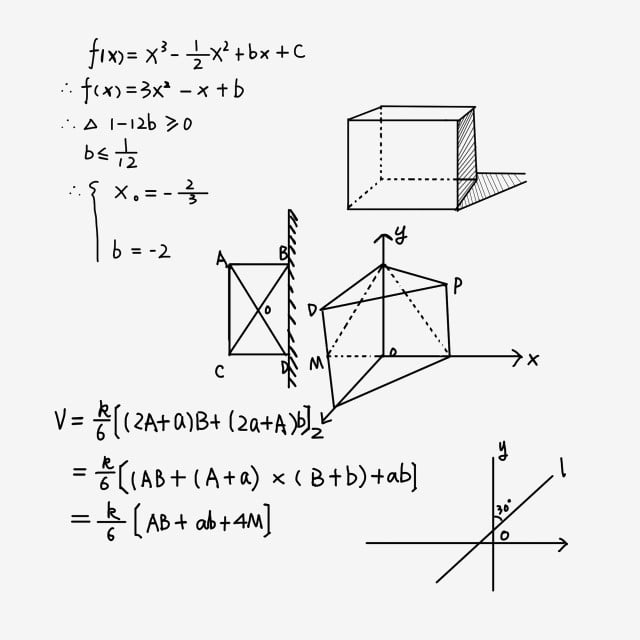 f(x) = x³ - 1/2 x² + bx + c
∴ f(x) = 3x² - x + b
∴ △ 1-12b ≥ 0
b ≤ 1/12
∴ { x₀ = - 2/3
b = -2
A B
O
C D
y
D P
M O x
z
V = k/6 [(2A+a)B + (2a+A)b]
= k/6 [(AB + (A+a) × (B+b) + ab]
= k/6 [AB + ab + 4M]
y l
30°
O